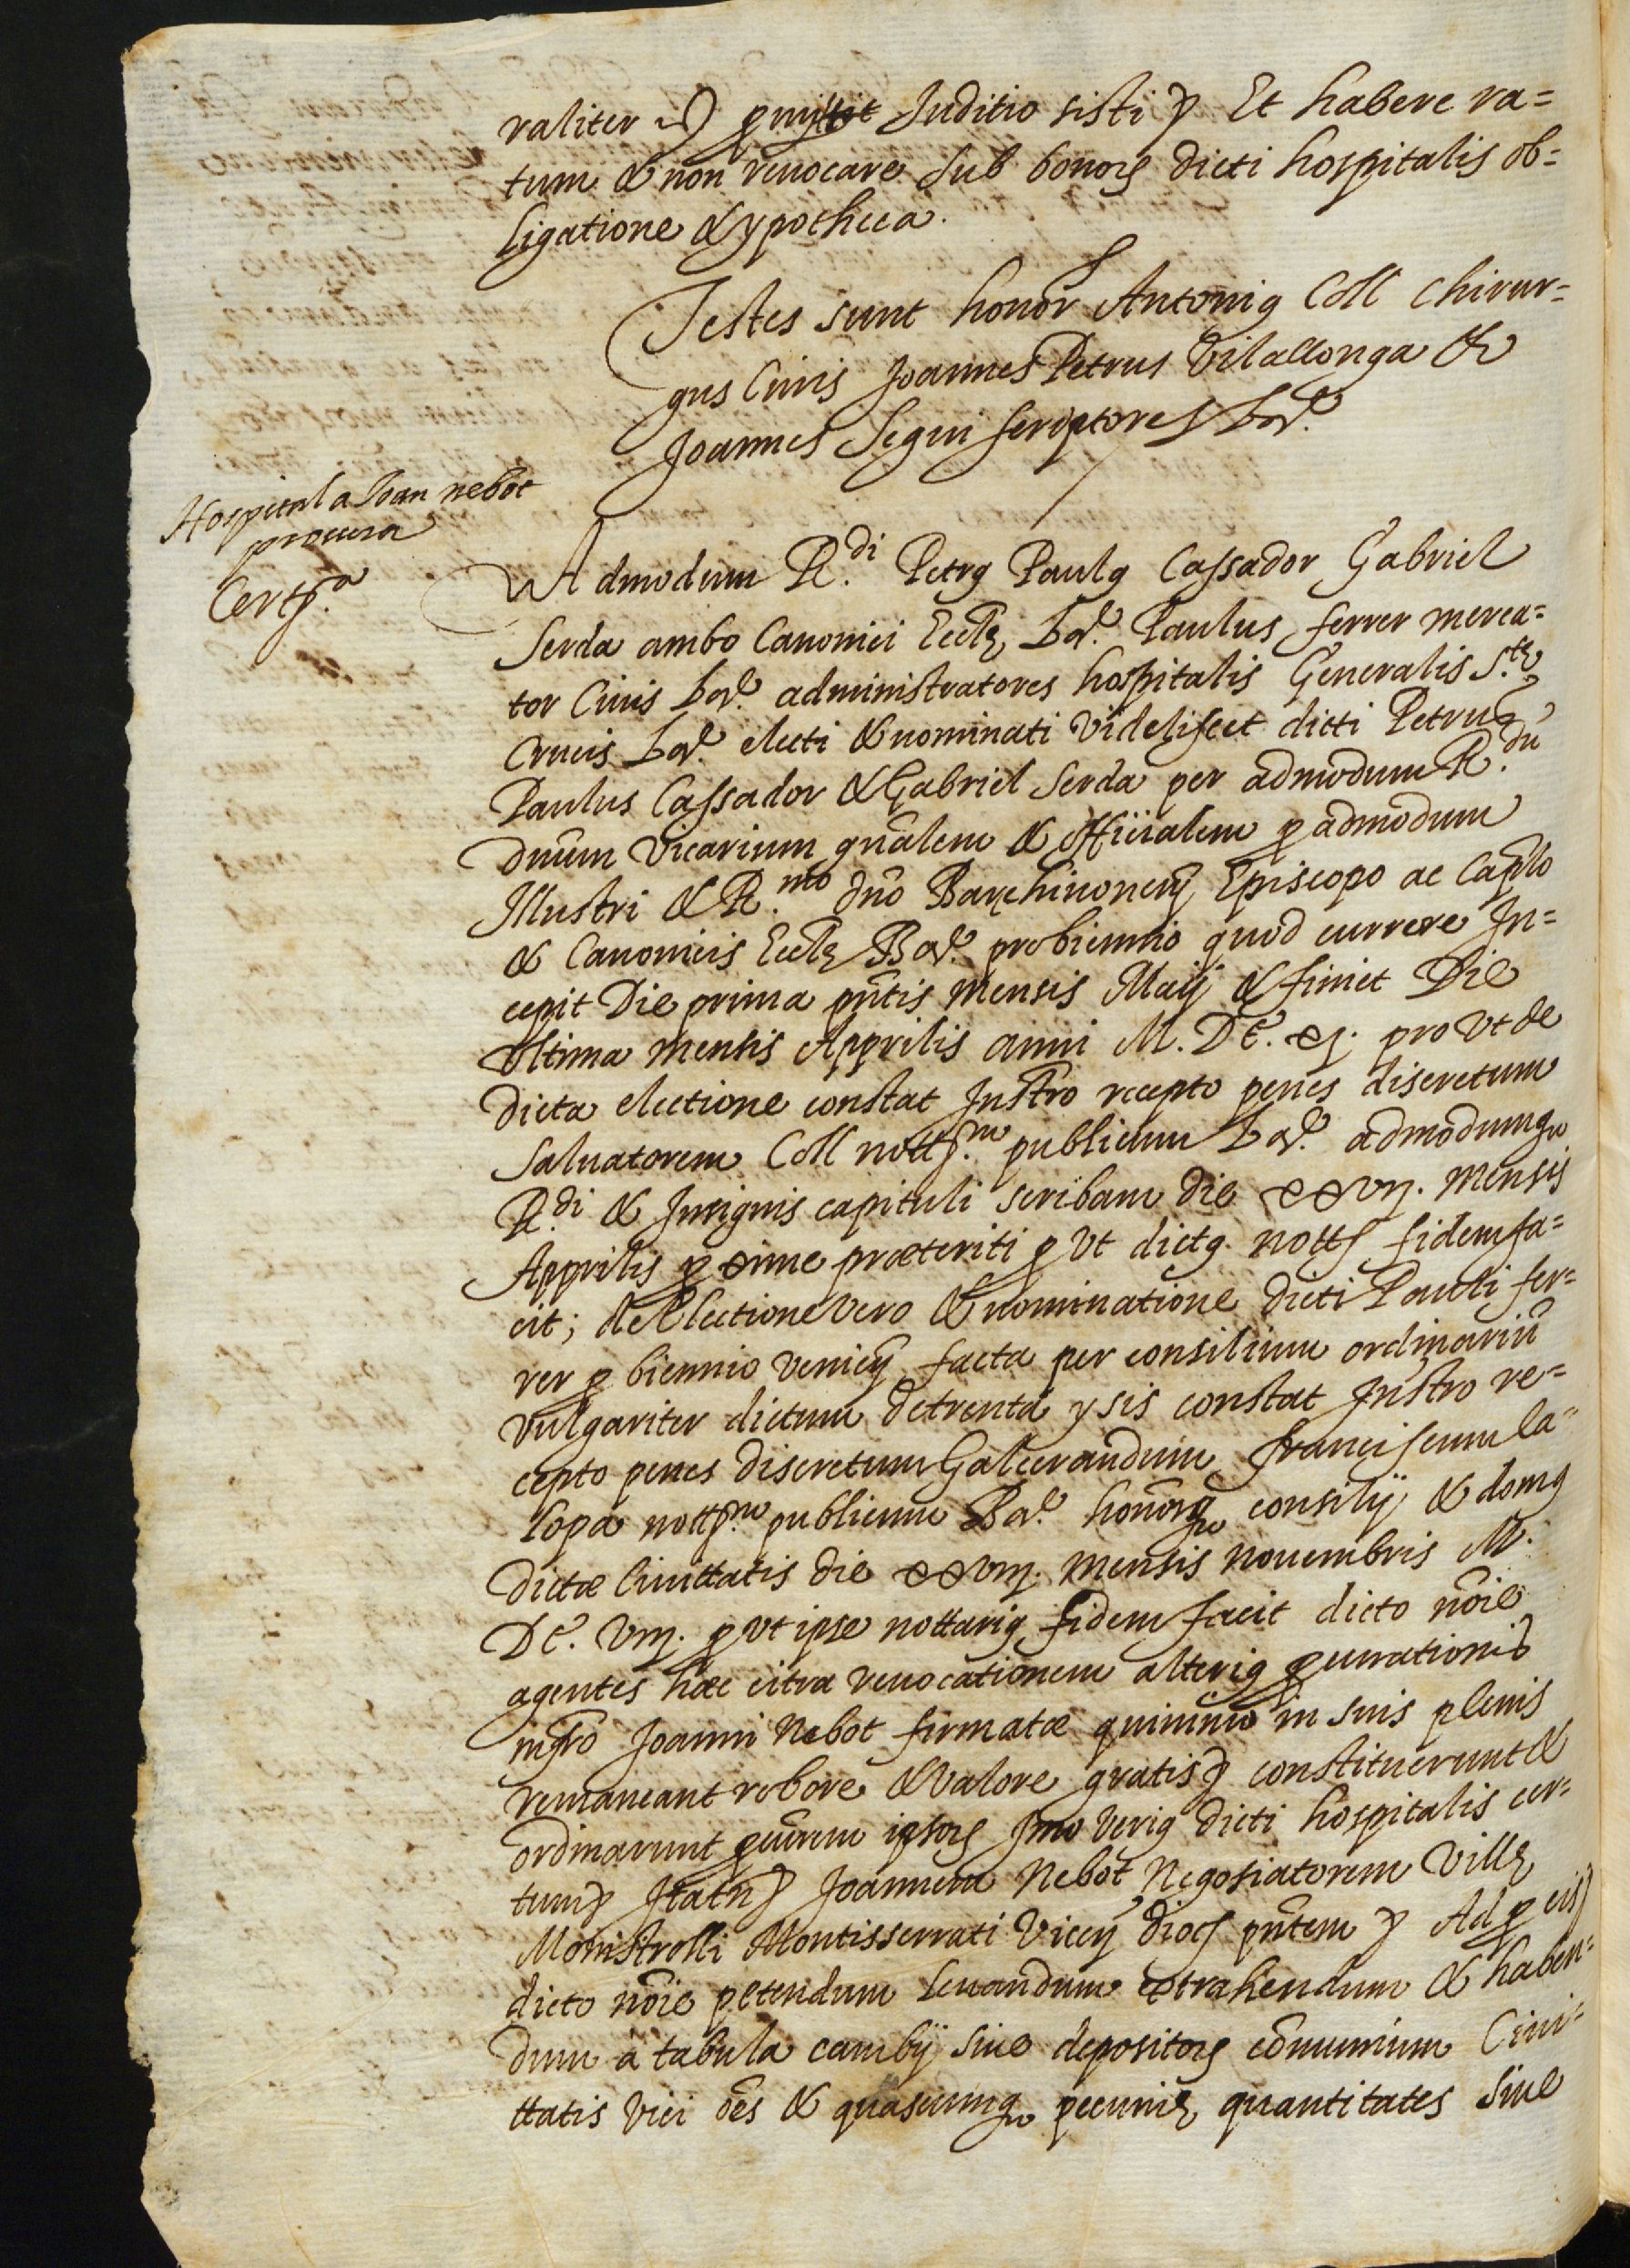 raliter Juditio sisti Et habere ra=
tum & non reuocare sub bonoꝝ dicti hospitalis ob=
ligatione & ypotheca.
Testes sunt honor Antoniꝯ Coll chirur=
gus Ciuis Joannes Petrus Vilallonga &
Joannes Segui scriptores Bar.ᵉ
Hospital a Joan nebot
procura
Certf.ᵃ
Admodum R.ᵈⁱ Petrꝯ Paulꝯ Cassador Gabriel
Serda ambo Canonici Eccłę Bar.ᵉ Paulus ferrer merca=
tor Ciuis Bar.ᵉ administratores hospitalis Generalis S.ᵗę
Crucis Bar.ᵉ electi & nominati Videliscet dicti Petrus
Paulus Cassador & Gabriel Serda per admodum R.ᵈᵘ
dnũm Vicarium gnãlem & officialem ꝑ admodum
Illustri & R.ᵐᵒ dnõ Barchinoneñ Episcopo ac Caplõ
& Canonicis Eccłę Bar.ᵉ probiennio quod currere In=
cepit Die prima pñtis mensis Maij & finiet Die
Vltima mensis Apprilis anni M. DC. xj. pro Vt de
dicta electione constat Instrõ recepto penes discretum
Saluatorem Coll nottꝭ.ᵐ publicum Bar.ᵉ admodumqꝫ
R.ᵈⁱ & Insignis capituli scribam die xxvij. mensis
Apprilis ꝓxime præteriti ꝓ Vt dictꝯ nottꝭ fidem fa=
cit; de Electione vero & nominatione dicti Pauli fer=
rer ꝓ biennio Venieñ facta per consilium ordinariũ
vulgariter dictum de trenta y sis constat Instrõ re=
cepto penes discretum Galcerandum franciscum ca=
lopa nottꝭ.ᵐ publicum Bar.ᵉ honorqꝫ consilij & domꝯ
dictæ Ciuittatis die xxviij. mensis nouembris M.
DC. viiij. ꝓ Vt ipse nottariꝯ fidem facit dicto nõie
agentes hæc citra reuocationem alteriꝯ ꝓcurationis
mgr̃o Joanni Nebot firmatæ quinimo in suis plenis
remaneant robore & valore gratis constituerunt &
ordinarunt ꝓcurem̃ ipsoꝝ Imo Veriꝯ dicti hospitalis cer=
tum Itatñ Joannem Nebot Negosiatorem Villę
Monistrolli Montisserrati Viceñ diocꝭ pñtem Ad ꝓ eis
dicto nõie petendum leuandum extrahendum & haben=
dum à tabula cambij siue depositoꝝ cõmunium Ciui=
ttatis Vici õẽs & quascumqꝫ pecunię quantitates siue